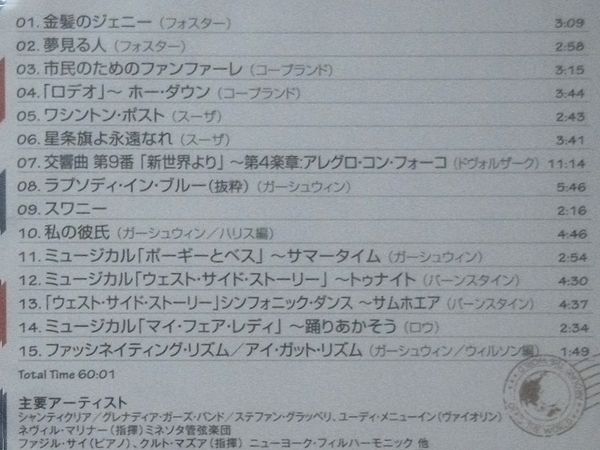 01. 金髪のジェニー（フォスター） 3:09
02. 夢見る人（フォスター） 2:58
03. 市民のためのファンファーレ（コープランド） 3:15
04. 「ロデオ」〜 ホー・ダウン（コープランド） 3:44
05. ワシントン・ポスト（スーザ） 2:43
06. 星条旗よ永遠なれ（スーザ） 3:41
07. 交響曲 第9番「新世界より」〜第4楽章:アレグロ・コン・フォーコ（ドヴォルザーク） 11:14
08. ラプソディ・イン・ブルー（抜粋）（ガーシュウィン） 5:46
09. スワニー 2:16
10. 私の彼氏（ガーシュウィン／ハリス編） 4:46
11. ミュージカル「ポーギーとベス」〜サマータイム（ガーシュウィン） 2:54
12. ミュージカル「ウェスト・サイド・ストーリー」〜トゥナイト（バーンスタイン） 4:30
13. 「ウェスト・サイド・ストーリー」シンフォニック・ダンス 〜サムホエア（バーンスタイン） 4:37
14. ミュージカル「マイ・フェア・レディ」〜踊りあかそう（ロウ） 2:34
15. ファッシネイティング・リズム／アイ・ガット・リズム（ガーシュウィン／ウィルソン編） 1:49
Total Time 60:01
主要アーティスト
シャンティクリア／グレナディア・ガーズ・バンド／ステファン・グラッペリ、ユーディ・メニューイン（ヴァイオリン）
ネヴィル・マリナー（指揮）ミネソタ管弦楽団
ファジル・サイ（ピアノ）、クルト・マズア（指揮） ニューヨーク・フィルハーモニック 他